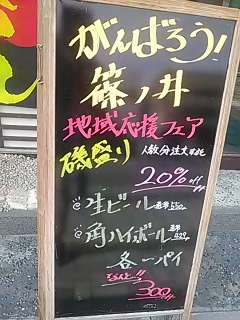 がんばろう!
篠ノ井
地域応援フェア
磯盛り 人数分注文
20%off
生ビール 通常
角ハイボール 通常
各一パイ
300